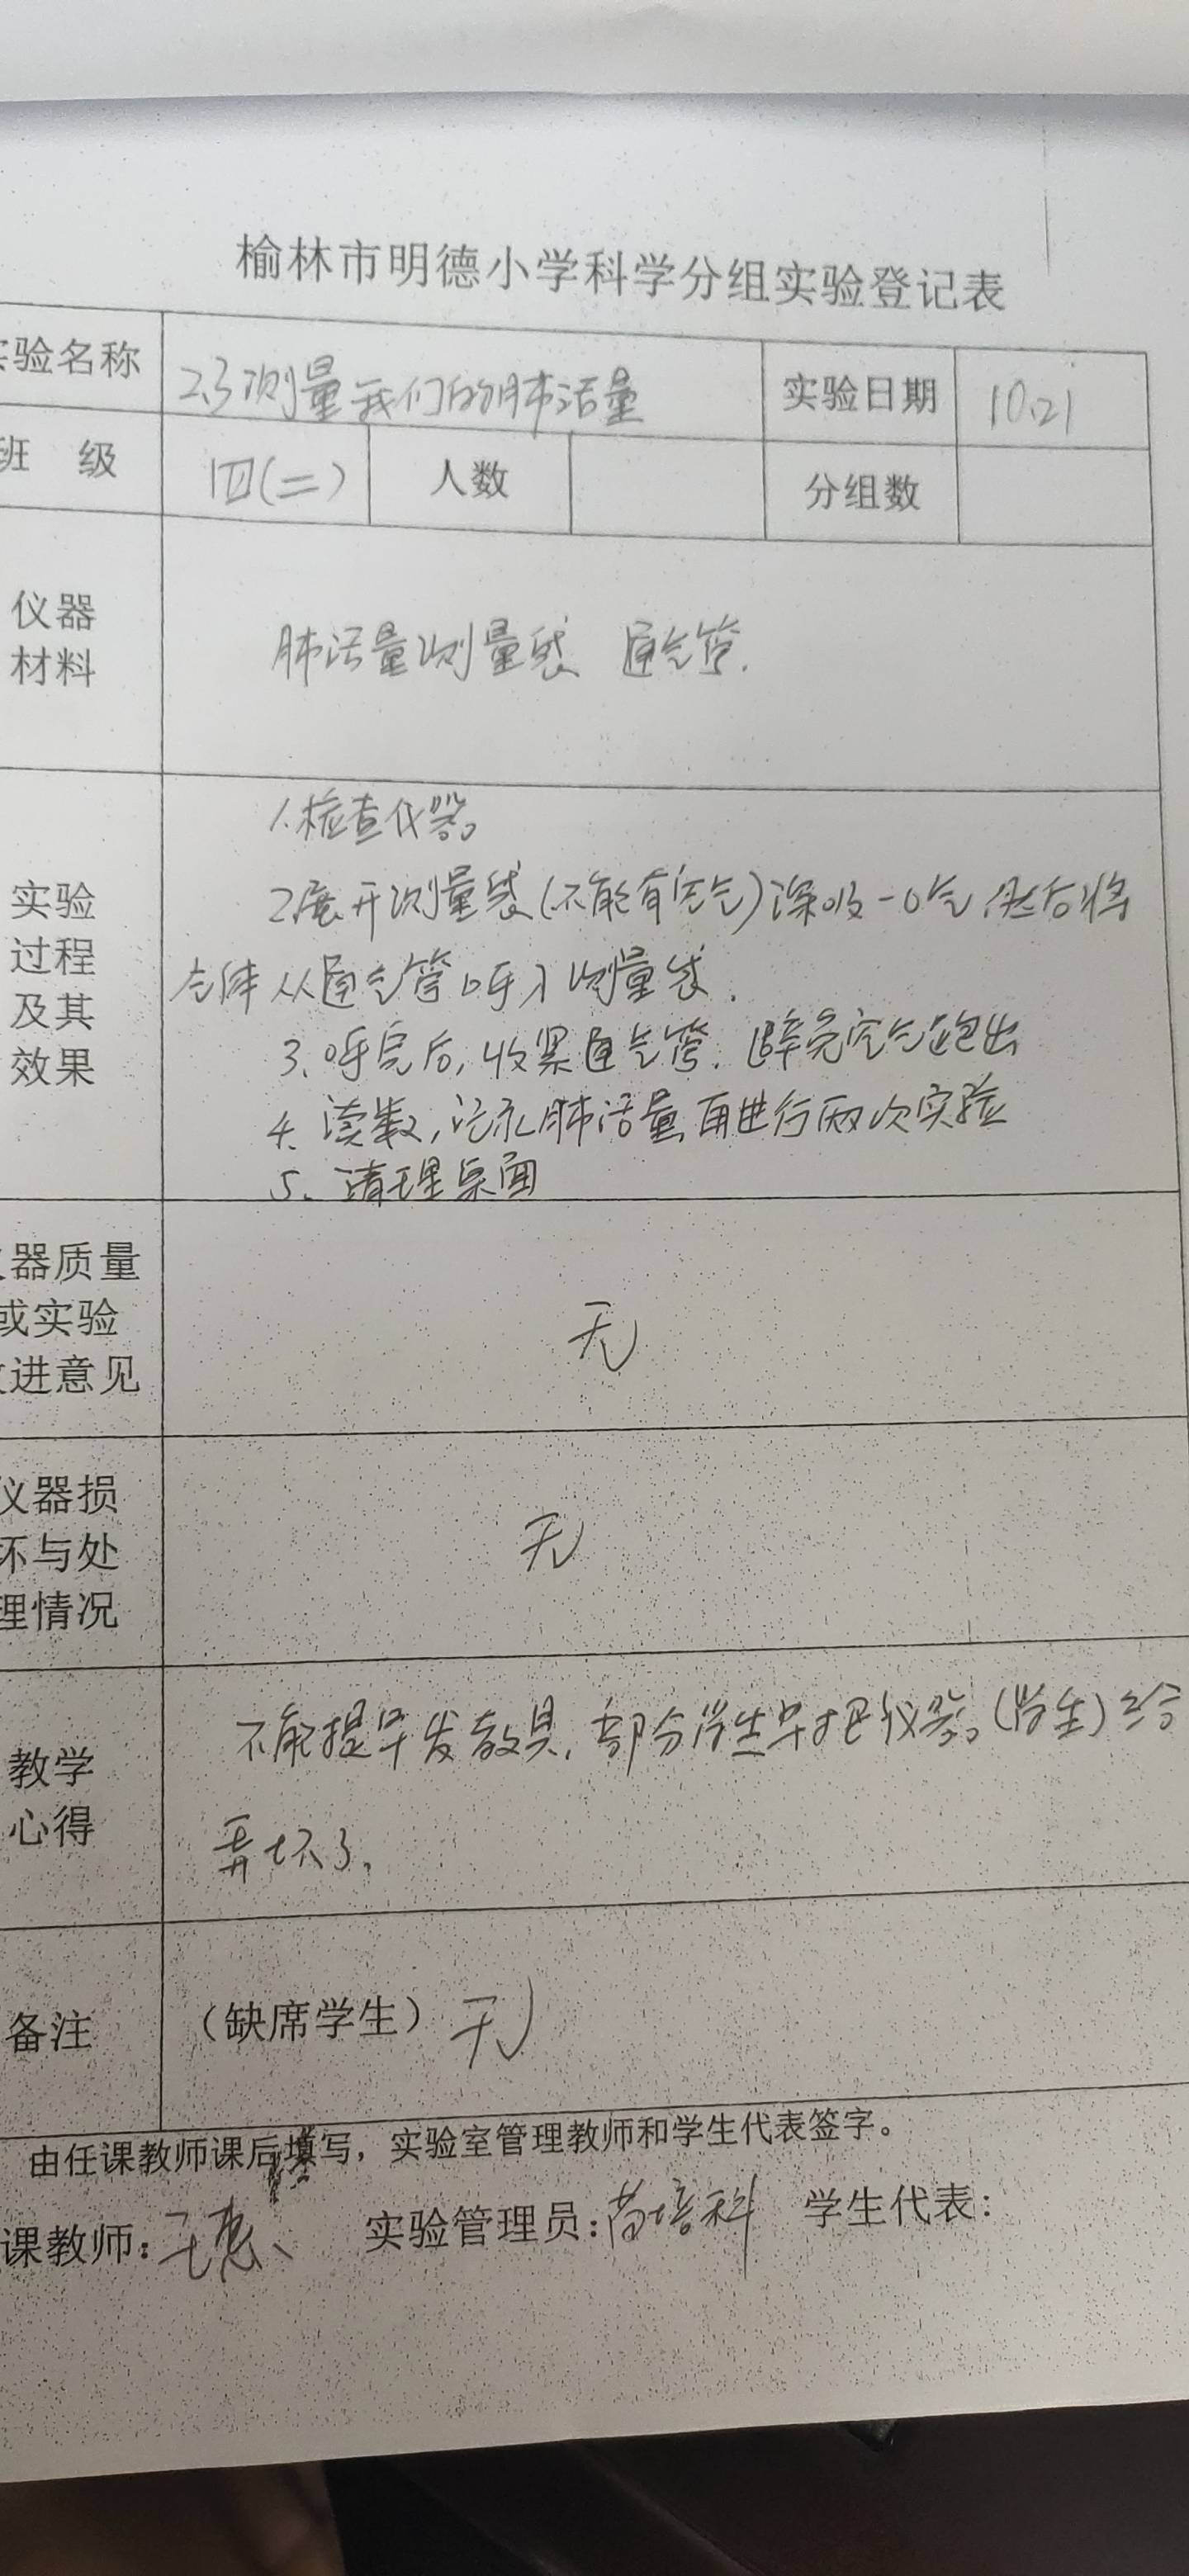 榆林市明德小学科学分组实验登记表
实验名称 2.3测量我们的肺活量 实验日期 10.21
班 级 四(二) 人数 分组数
仪器
材料
肺活量测量袋 通气管.
实验
过程
及其
效果
1.检查仪器。
2展开测量袋(不能有空气)深吸一口气 然后将
气体从通气管呼入测量袋.
3、呼完后,收紧通气管.避免空气跑出
4.读数,记录肺活量,再进行两次实验
5、清理桌面
仪器质量
或实验
改进意见
无
仪器损
坏与处
理情况
无
教学
心得
不能提早发教具,部分学生早把仪器。(学生)给
弄坏了,
备注
(缺席学生) 无
由任课教师课后填写，实验室管理教师和学生代表签字。
课教师: 实验管理员:苗培科 学生代表: